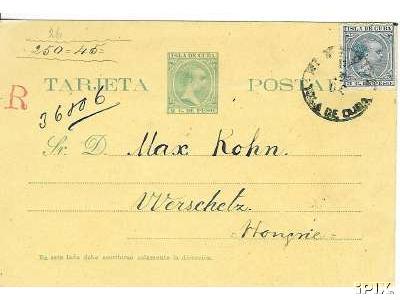 26
250=45=
ISLA DE CUBA
ISLA DE CUBA
TARJETA POSTAL
2 C. DE PESO
DE CUBA
R
36806
Sr. D. Max Kohn.
Werschetz.
Hongrie.
En este lado debe escribirse solamente la dirección.
iPIX